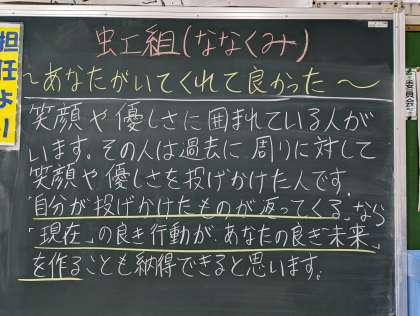 虹組(ななくみ)
〜あなたがいてくれて良かった〜
笑顔や優しさに囲まれている人が
います。その人は過去に周りに対して
笑顔や優しさを投げかけた人です。
「自分が投げかけたものが返ってくる」なら
「現在」の良き行動が、あなたの良き"未来"
を作ることも納得できると思います。
担任より
委員会